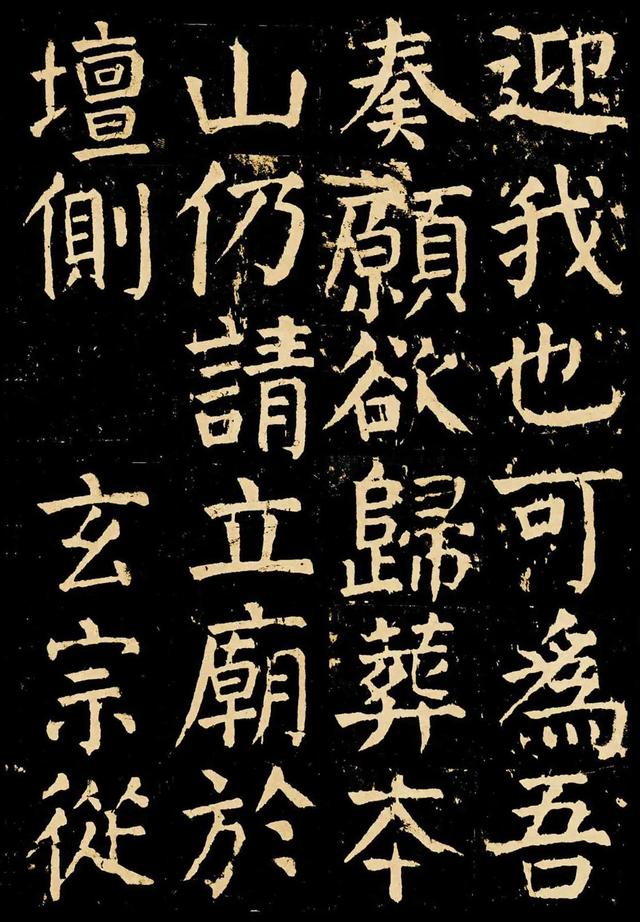 迎我也可爲吾
奏願欲歸葬本
山仍請立廟於
壇側　玄宗從